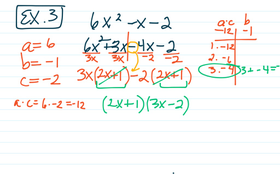 EX. 3
6x² -x -2
a = 6
b = -1
c = -2
6x² + 3x - 4x - 2
3x 3x -2 -2
3x(2x+1) -2(2x+1)
a·c = 6·-2 = -12
(2x+1)(3x-2)
a·c b
-12 -1
1·-12
2·-6
3·-4 3+-4=